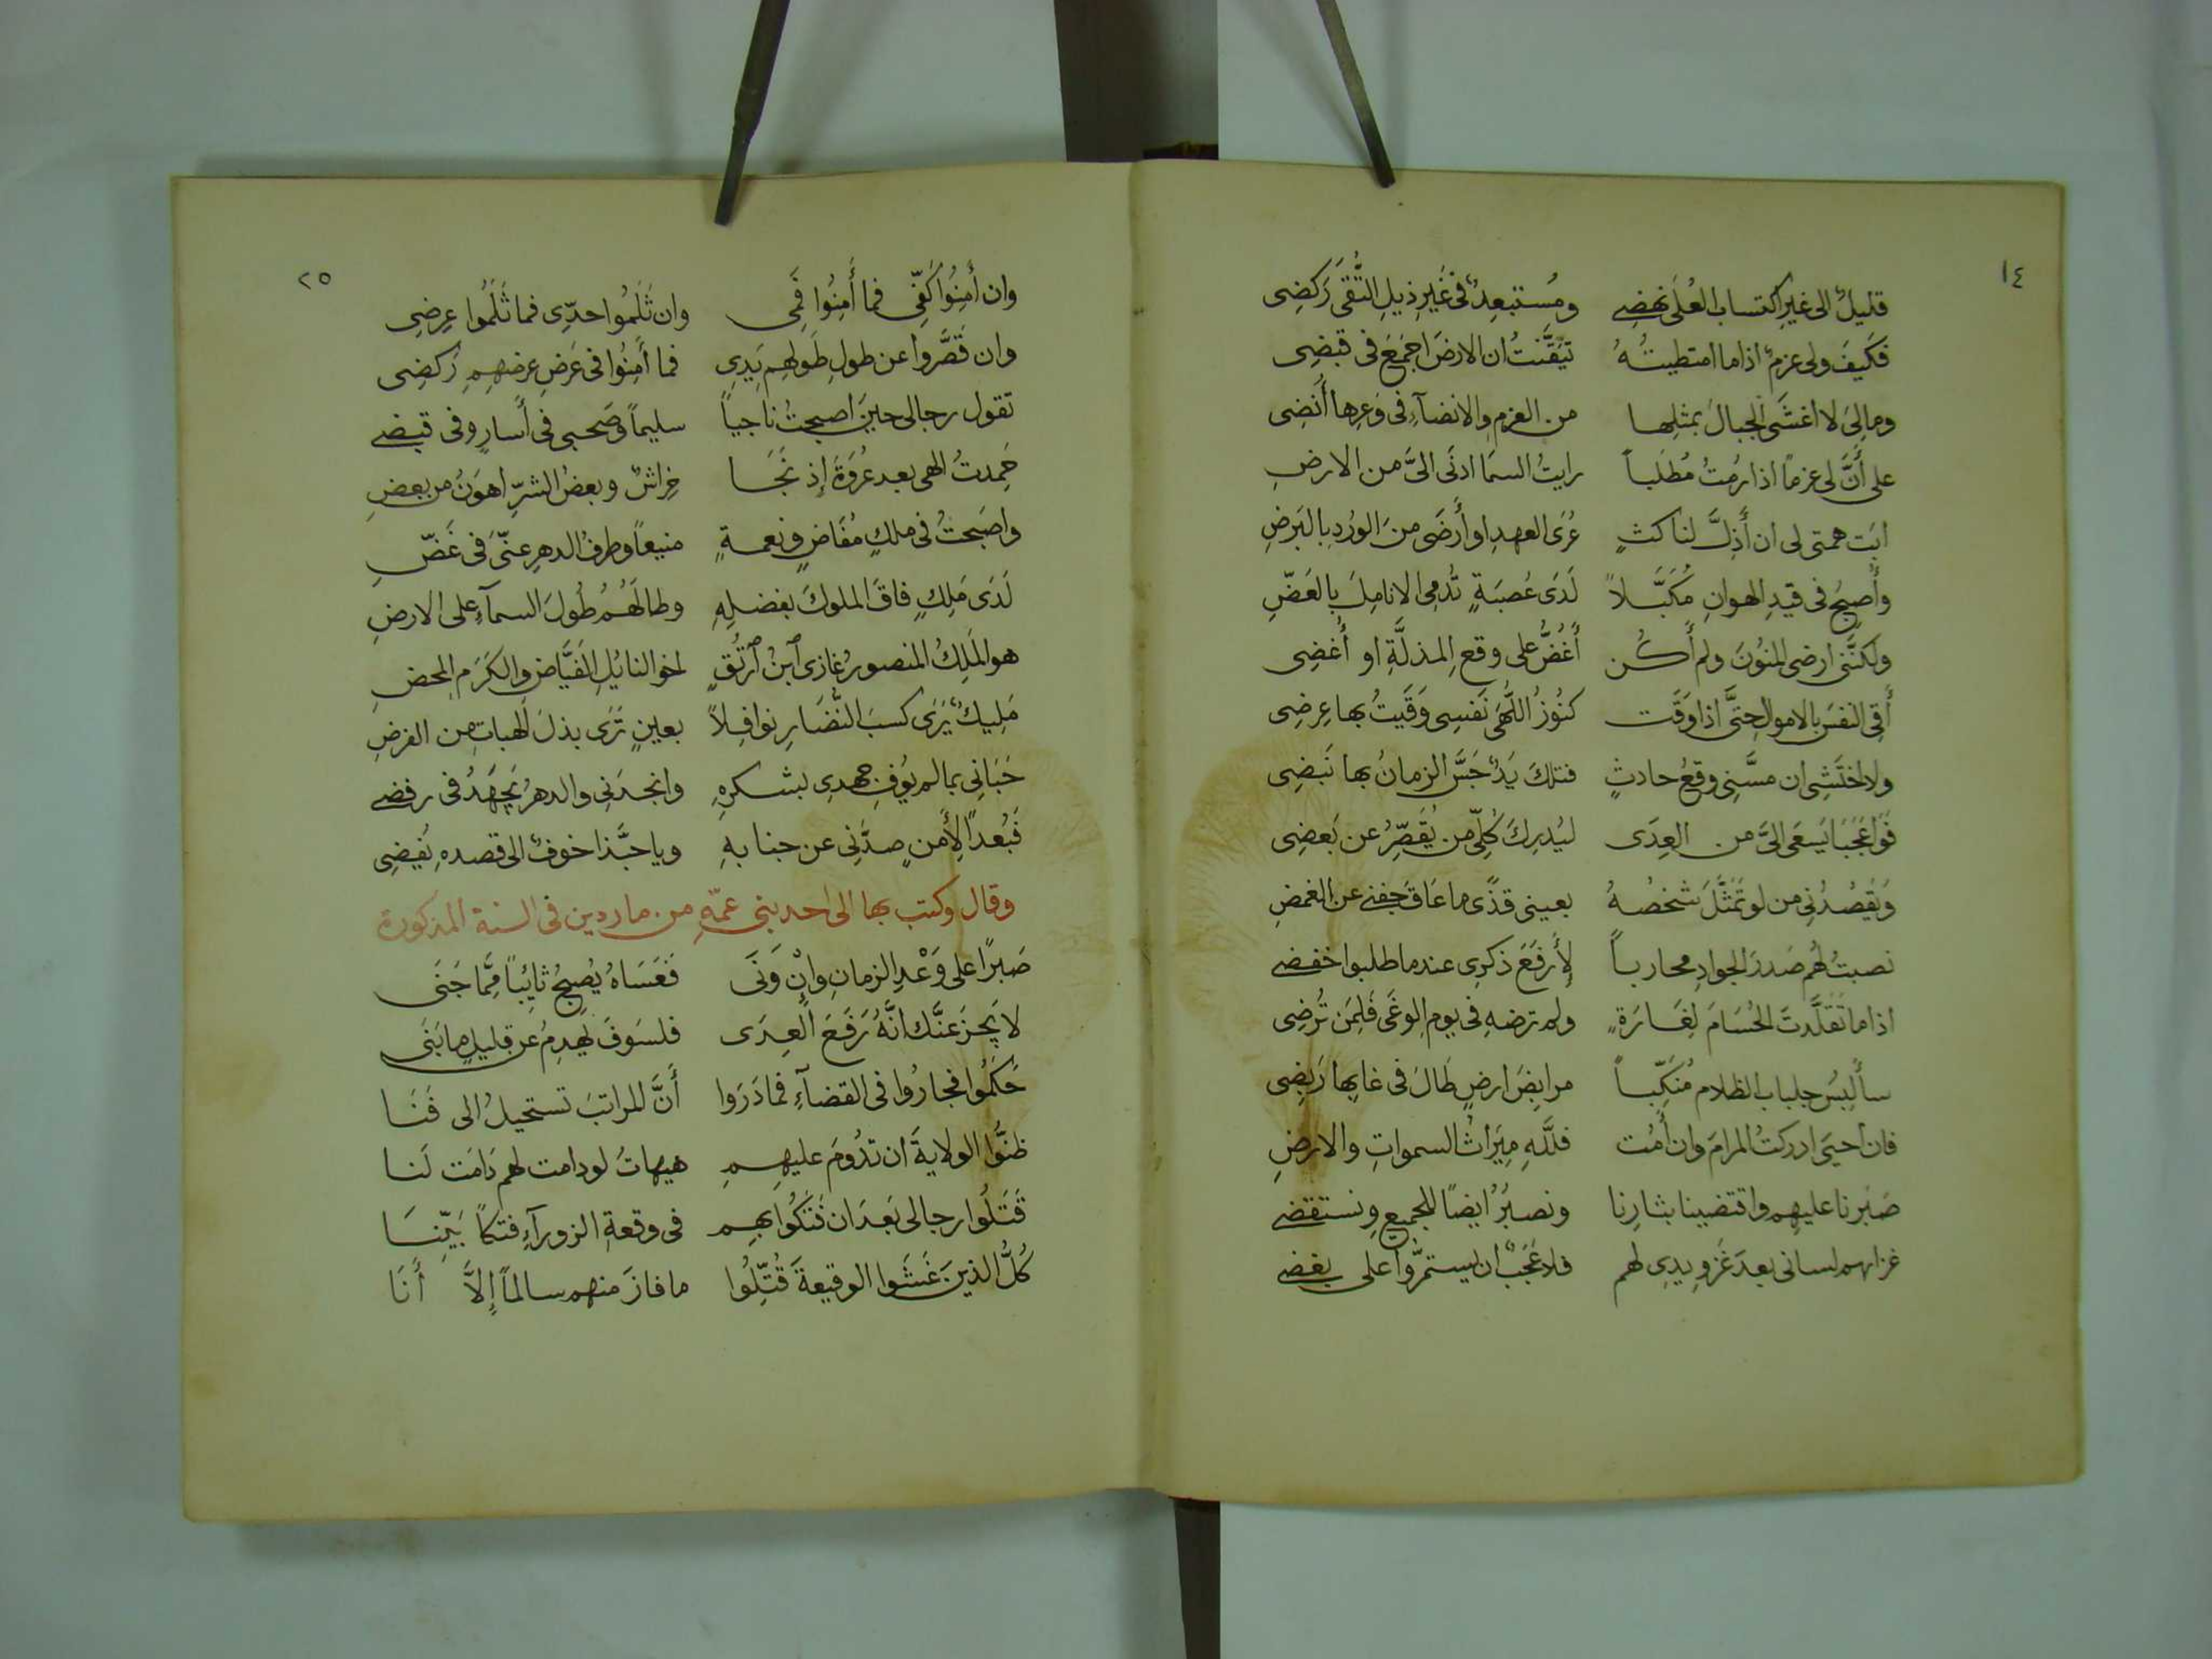 ١٤
قليلٌ الى غيرِ اكتساب العُلَى نهضِى ومُستبعِدٌ فى غَيرِ ذيلِ التُّقَى رَكضِى
فكَيفَ ولى عزمٌ اذا ما امتطيتُهُ تيَقَّنتُ ان الارضَ اجمَعَ فى قبضِى
ومالِىَ لا اغشَى الجبالَ بمثلِها من العزم والانضآءِ فى وَعرِها أُنضِى
على أَنَّ لى عزمًا اذا رُمتُ مُطلَباً رايتُ السمَا ادنَى الىَّ من الارضِ
ابَت همتى لى ان أَذِلَّ لناكثٍ عُرَى العهدِ او أَرضَى منَ الورُدِ بالبَرضِ
وأُصبِحُ فى قيدِ الهوانِ مُكَبَّلاً لَدَى عُصبَةٍ تُدمِى الانامِلَ بالعَضِّ
ولكنَّنى ارضى المنُونَ ولم أَكُن أَغُضُّ على وقعِ المذلَّةِ او أُغضِى
أَقِى النفسَ بالاموال حتَّى اذا وَقَت كنُوزُ اللُّهَى نَفسِى وَقَيتُ بها عِرضِى
ولا اختَشِى ان مسَّنِى وقعُ حادثٍ فتلكَ يَدٌ جَسَّ الزمانُ بها نَبضِى
فَوا عَجَبَا يَسعَى الىَّ من العِدَى ليُدرِكَ كُلِّى من يُقَصِّرُ عن بَعضِى
وَيَقصُدُنِى من لو تَمثَّلَ شَخصُهُ بعينى قذًى ما عَاقَ جَفنِى عن الغمضِ
نصبتُ لهُم صَدرَ الجوادِ محارباً لأَرفَعَ ذكرِى عندما طلبوا خفضِى
اذا ما تَقَلَّدتَ الحُسَامَ لِغَارَةٍ ولم ترضهِ فى يومِ الوغَى فَلِمَن تُرضِى
سأَلبِسُ جلباب الظلام مُنَكِّباً مرابِضَ ارضٍ طَالَ فى غابِها رَبضِى
فان احيَى ادركتُ المرامَ وان أَمُت فلَلَّهِ مِيَراثُ السمواتِ والارضِ
صَبَرنا عليهم واقتضينا بثارِنا ونصبُرُ ايضًا للجميع ونستقضِى
غزاهم لسانى بعدَ غَزوِ يدِى لهم فلا عَجَبٌ ان يستمرّوا على بغضِى
٢٥
وان أَمِنُوا كَفِّى فما أَمِنُوا فَمِى وان ثَلَمُوا حدِّى فما ثَلَمُوا عِرضِى
وان قَصَّروا عن طولِ طَولهِم يَدِى فما أَمِنُوا فى عَرضِ عرضهِمِ رَكضِى
تقول رجالى حينَ اصبحتُ ناجياً سليماً وصَحبى فى أَسارٍ وفى قبضِى
حَمِدتُ الهى بعد عُروَةَ إذ نَجَا خِراشٌ وبعضُ الشرِّ اهوَنُ من بعضِ
واصبَحتُ فى ملكٍ مُفَاضٍ ونعمةٍ منيعاً وطرفُ الدهرِ عنِّى فى غَضِّ
لَدَى مَلِكٍ فاقَ الملوكَ بفضلِهِ وطالَهُمُ طُولَ السمآءِ على الارضِ
هو المَلِكُ المنصورُ غازى ٱبنُ ٱرتُقٍ اخو النايُلِ الفَيَّاضِ والكَرَمِ المحضِ
مَلِيكٌ يَرَى كسبَ النُّضَارِ نوافِلاً بعينٍ تَرَى بذلَ الهباتِ من الفرضِ
حَبَانِى بما لم يُوفِ جهدِى بشكرِهِ وانجدَنِى والدهرُ يَجهَدُ فى رفضِى
فَبُعداً لأَمنٍ صدَّنِى عن جنابهِ وياحبَّذا خوفٌ الى قصدهِ يُفضِى
وقال وكتب بها الى احد بنى عمّهِ من ماردين فى السنة المذكورة
صَبرًا على وَعْدِ الزمانِ وإنْ وَنَى فَعَسَاهُ يُصبِحُ تائِبًا مِمَّا جَنَى
لا يَحزِنَنَّك انَّهُ رَفَعَ العِدَى فلسَوفَ يهدِمُ عن قليلٍ ما بَنَى
حَكَمُوا فجارُوا فى القضآءِ فما دَرَوا أَنَّ المراتبَ تستحيلُ الى فَنَا
ظنُّوا الولايةَ ان تدُومَ عليهِمِ هيهاتُ لو دامت لهم دَامَت لَنا
قَتَلُوا رجالى بَعدَ ان فَتَكُوا بهم فى وقعةِ الزورآءِ فتكًا بَيِّنَا
كُلُّ الذينَ غَشَوا الوقيعةَ قُتِّلُوا ما فازَ منهم سالماً إلاَّ أَنَا